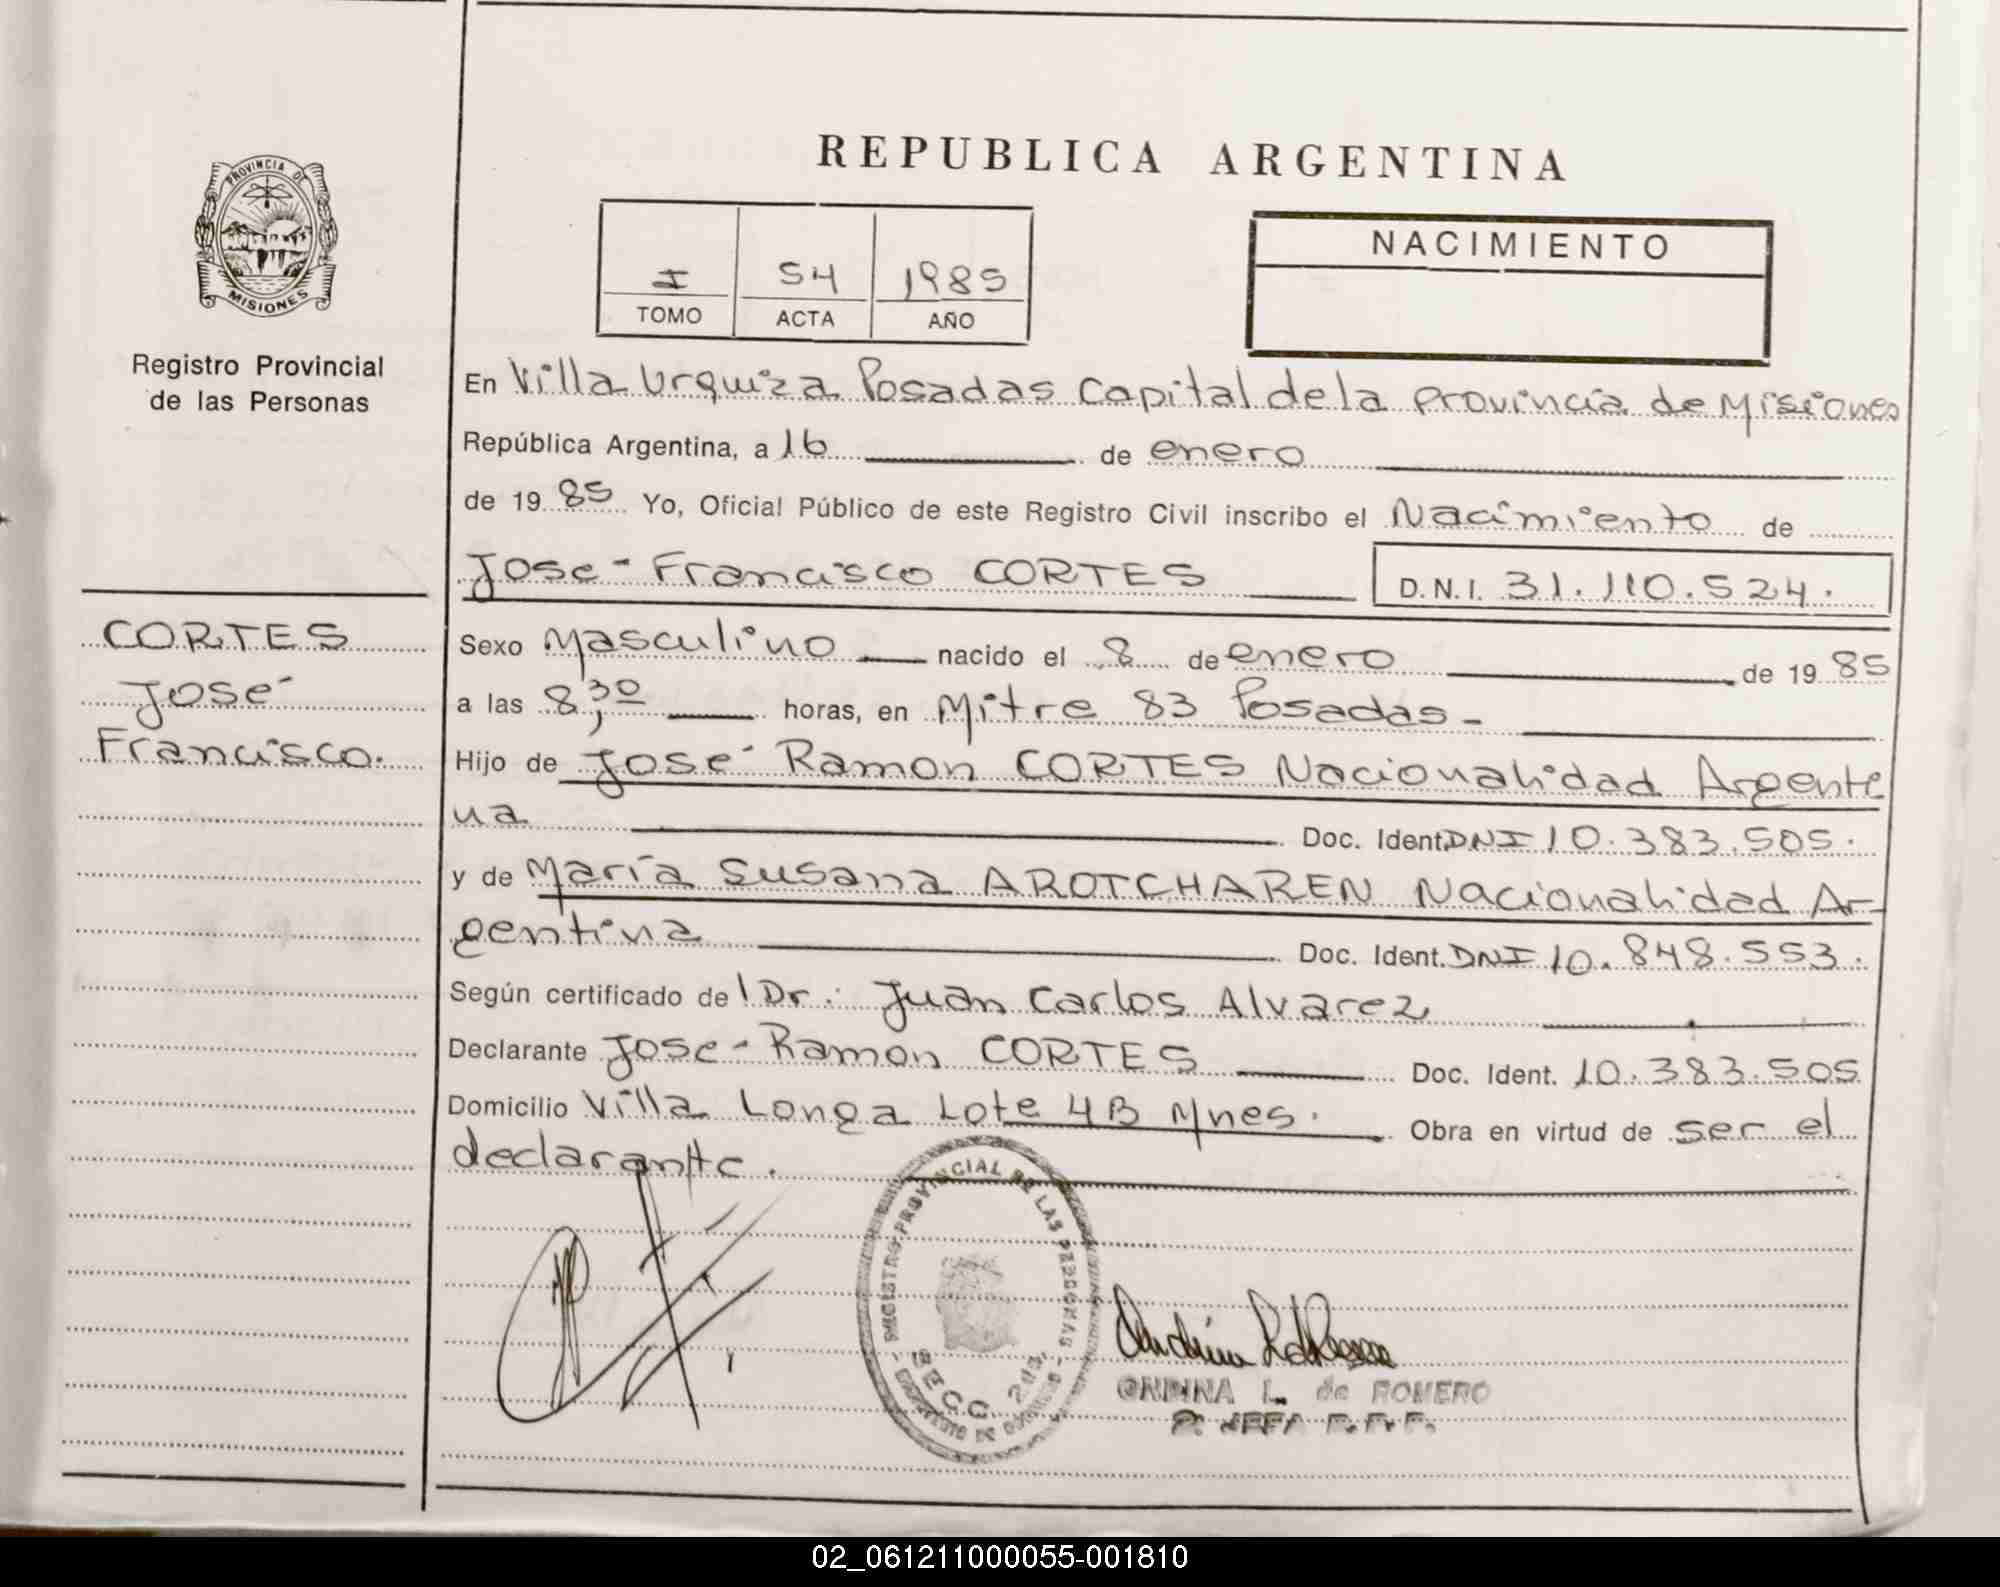 REPUBLICA ARGENTINA
PROVINCIA DE
MISIONES
Registro Provincial
de las Personas
I 54 1985
TOMO ACTA AÑO
NACIMIENTO
En Villa Urquiza Posadas Capital de la Provincia de Misiones
República Argentina, a 16 de enero
de 1985 Yo, Oficial Público de este Registro Civil inscribo el Nacimiento de
José Francisco CORTES D.N.I. 31.110.524.
CORTES
José
Francisco.
Sexo Masculino nacido el 8 de enero de 1985
a las 8,30 horas, en Mitre 83 Posadas-
Hijo de José Ramon CORTES Nacionalidad Argenti
na Doc. Ident. DNI 10.383.505.
y de María Susana AROTCHAREN Nacionalidad Ar-
gentina Doc. Ident. DNI 10.848.553.
Según certificado del Dr. Juan Carlos Alvarez
Declarante José Ramon CORTES Doc. Ident. 10.383.505
Domicilio Villa Longa Lote 4B Mnes. Obra en virtud de ser el
declarante.
REGISTRO PROVINCIAL DE LAS PERSONAS
SECC. 203
ONDINA L. de ROMERO
2ª JEFA
02_061211000055-001810